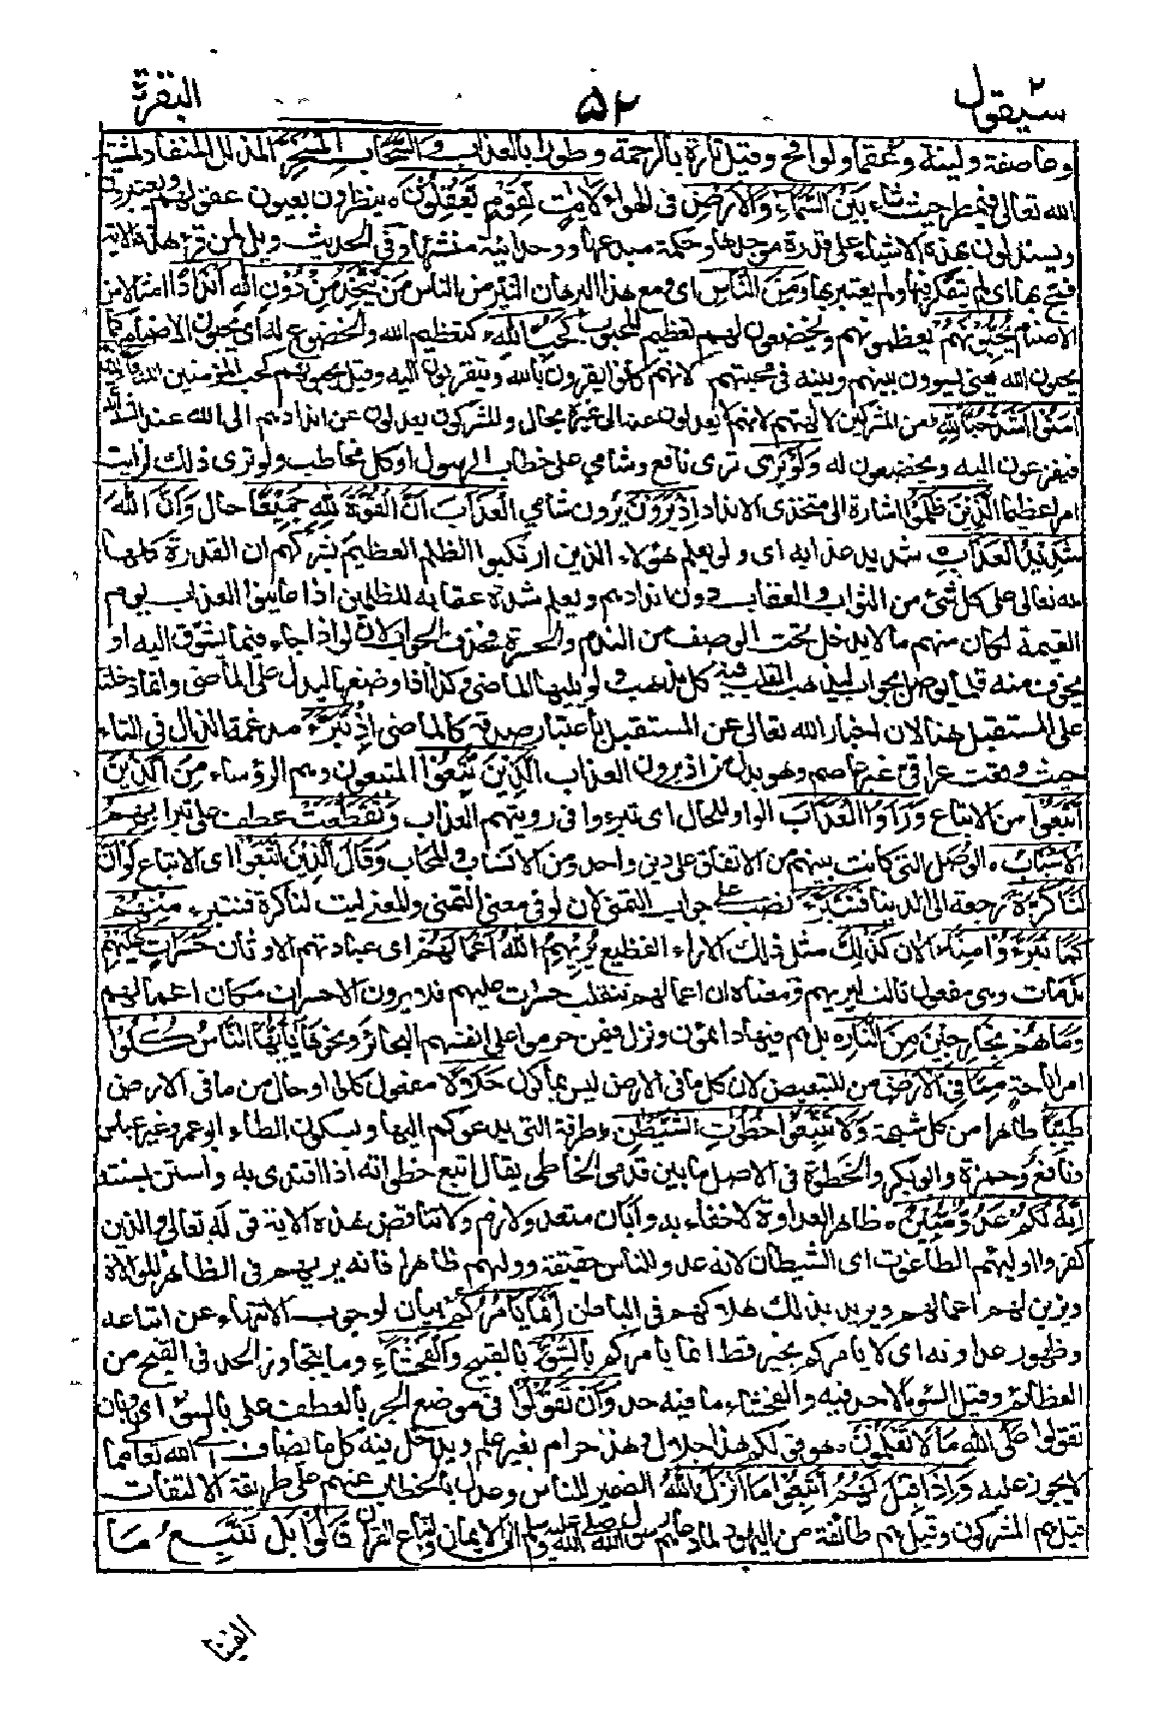 سيقول ٢
٥٢
البقرة
وعاصفة ولينة وعقما ولواقح وقيل تارة بالرحمة وطورا بالعذاب والسَّحَابِ الْمُسَخَّرِ المذلل المنقاد لمشية
الله تعالى فيمطر حيث شاء بَيْنَ السَّمَاءِ وَالْأَرْضِ فى الهواء لَآيَاتٍ لِقَوْمٍ يَعْقِلُونَ ه ينظرون بعيون عقولهم ويعتبرون
ويستدلون بهذه الاشياء على قدرة موجدها وحكمة مبدعها ووحدانية منشئها وفى الحديث ويل لمن قرء هذه الآية
فمج بها اى لم يتفكر فيها ولم يعتبر بها وَمِنَ النَّاسِ اى ومع هذا البرهان النير من الناس مَنْ يَتَّخِذُ مِنْ دُونِ اللهِ أَنْدَادًا امثالا من
الاصنام يُحِبُّونَهُمْ يعظمونهم ويخضعون لهم تعظيم المحبوب كَحُبِّ اللهِ كتعظيم الله والخضوع له اى يحبون الاصنام كما
يحبون الله يعنى يسوون بينهم وبينه فى محبتهم لانهم كانوا يقرون بالله ويتقربون اليه وقيل يحبونهم كحب المؤمنين الله وَالَّذِينَ
آمَنُوا أَشَدُّ حُبًّا لِلّهِ من المشركين لآلهتهم لانهم لا يعدلون عنه الى غيره بحال والمشركون يعدلون عن اندادهم الى الله عند الشدائد
فيفزعون اليه ويخضعون له وَلَوْ يَرَى ترى نافع وشامى على خطاب الرسول او كل مخاطب ولو ترى ذلك لرايت
امرا عظيما الَّذِينَ ظَلَمُوا اشارة الى متخذى الانداد إِذْ يَرَوْنَ يُرون شامى الْعَذَابَ أَنَّ الْقُوَّةَ لِلّهِ جَمِيعًا حال وَأَنَّ اللهَ
شَدِيدُ الْعَذَابِ شديد عذابه اى ولو يعلم هؤلاء الذين ارتكبوا الظلم العظيم بشركهم ان القدرة كلها
لله تعالى على كل شئ من الثواب والعقاب دون اندادهم ويعلم شدة عقابه للظلمين اذا عاينوا العذاب يوم
القيمة لكان منهم ما لا يدخل تحت الوصف من الندم والحسرة فحذف الجواب لان لو اذا جاء فيما يشوق اليه او
يخوف منه قلما يوصل بجواب ليذهب القلب فيه كل مذهب ولو يليها الماضى وكذا اذ وضعها ليدل على الماضى وانما دخلتا
على المستقبل هنا لان اخبار الله تعالى عن المستقبل باعتبار صدقه كالماضى إِذْ تَبَرَّءَ مدغمة الذال فى التاء
حيث وقعت عراقى غير عاصم وهو بدل من اذ يرون العذاب الَّذِينَ اتُّبِعُوا المتبعون وهم الرؤساء مِنَ الَّذِينَ
اتَّبَعُوا من الاتباع وَرَأَوُا الْعَذَابَ الواو للحال اى تبرءوا فى رويتهم العذاب وَتَقَطَّعَتْ عطف على تبرا بِهِمُ
الْأَسْبَابُ الوصل التى كانت بينهم من الاتفاق على دين واحد ومن الانساب والمحاب وَقَالَ الَّذِينَ اتَّبَعُوا اى الاتباع لَوْ أَنَّ
لَنَا كَرَّةً رجعة الى الدنيا فَنَتَبَرَّءَ نصب على جواب التمنى لان لو فى معنى التمنى والمعنى ليت لنا كرة فنتبرء مِنْهُمْ
كَمَا تَبَرَّءُوا مِنَّا الآن كَذَلِكَ مثل ذلك الاراء الفظيع يُرِيهِمُ اللهُ أَعْمَالَهُمْ اى عبادتهم الاوثان حَسَرَاتٍ عَلَيْهِمْ
ندامات وهى مفعول ثالث ليريهم ومعناه ان اعمالهم تنقلب حسرات عليهم فلا يرون الا حسرات مكان اعمالهم
وَمَا هُمْ بِخَارِجِينَ مِنَ النَّارِ ه بل هم فيها دائمون ونزل فيمن حرموا على انفسهم البحائر ونحوها يَا أَيُّهَا النَّاسُ كُلُوا
امر اباحة مِمَّا فِي الْأَرْضِ من للتبعيض لان كل ما فى الارض ليس بماكول حَلَالًا مفعول كلوا او حال من ما فى الارض
طَيِّبًا طاهرا من كل شبهة وَلَا تَتَّبِعُوا خُطُوَاتِ الشَّيْطَنِ طرقه التى يدعوكم اليها وبسكون الطاء ابو عمرو غير عباس
ونافع وحمزة وابو بكر والخطوة فى الاصل ما بين قدمى الخاطى يقال اتبع خطواته اذا اقتدى به واستن بسنته
إِنَّهُ لَكُمْ عَدُوٌّ مُبِينٌ ه ظاهر العداوة لا خفاء به وابان متعد ولازم ولا تناقض هذه الآية قوله تعالى والذين
كفروا اوليئهم الطاغوت اى الشيطان لانه عدو للناس حقيقة ووليهم ظاهرا فانه يريهم فى الظاهر الموالاة
ويزين لهم اعمالهم ويريد بذلك هلاكهم فى الباطن إِنَّمَا يَأْمُرُكُمْ بيان لوجوب الانتهاء عن اتباعه
وظهور عداوته اى لا يأمركم بخير قط انما يأمركم بِالسُّوءِ بالقبيح وَالْفَحْشَاءِ وما يتجاوز الحد فى القبح من
العظائم وقيل السوء ما لا حد فيه والفحشاء ما فيه حد وَأَنْ تَقُولُوا فى موضع الجر بالعطف على بالسوء اى وبان
تقولوا عَلَى اللهِ مَا لَا تَعْلَمُونَ ه هو قولكم هذا حلال وهذا حرام بغير علم ويدخل فيه كل ما يضاف الى الله تعالى مما
لا يجوز عليه وَإِذَا قِيلَ لَهُمُ اتَّبِعُوا مَا أَنْزَلَ اللهُ الضمير للناس وعدل بالخطاب عنهم على طريقة الالتفات
قيل هم المشركون وقيل هم طائفة من اليهود لما دعاهم رسول الله صلى الله عليه وسلم الى الايمان واتباع القرآن قَالُوا بَلْ نَتَّبِعُ مَا
الفينا